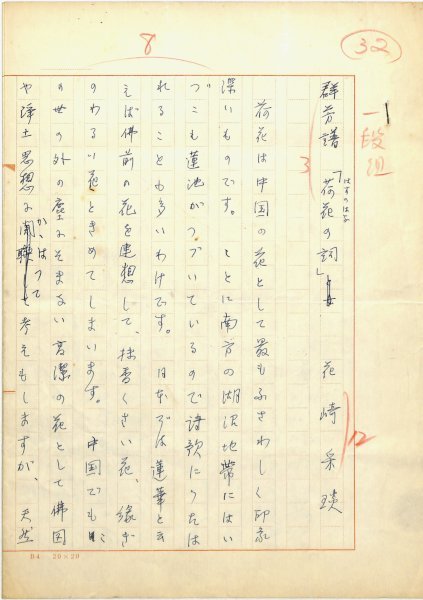 8
32
一段組
群芳譜「荷花の詞」 花崎采琰
はすのはな
3
12
荷花は中国の花として最もふさわしく印象
深いものです。ことに南方の湖沼地帯にはい
づこも蓮池がつづいているので詩歌にうたは
れることも多いわけです。日本では蓮華と云
えば佛前の花を連想して、抹香くさい花、縁ぎ
のわるい花ときめてしまいます。中国でもこ
の世の外の塵にそまない高潔の花として佛国
や浄土思想にかゝはつて考えもしますが、天然
B4 20×20